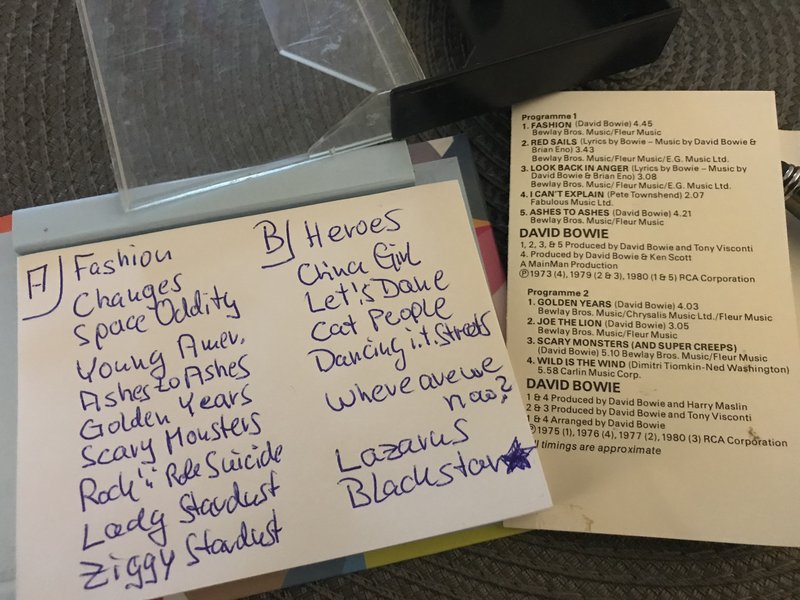 A
Fashion
Changes
Space Oddity
Young Amer.
Ashes to Ashes
Golden Years
Scary Monsters
Rock'n Role Suicide
Lady Stardust
Ziggy Stardust
B Heroes
China Girl
Let's Dane
Cat People
Dancing i.t. Streets
Where are we
now?
Lazarus
Blackstar
Programme 1
1. FASHION (David Bowie) 4.45
Bewlay Bros. Music/Fleur Music
2. RED SAILS (Lyrics by Bowie – Music by David Bowie &
Brian Eno) 3.43
Bewlay Bros. Music/Fleur Music/E.G. Music Ltd.
3. LOOK BACK IN ANGER (Lyrics by Bowie – Music by
David Bowie & Brian Eno) 3.08
Bewlay Bros. Music/Fleur Music/E.G. Music Ltd.
4. I CAN'T EXPLAIN (Pete Townshend) 2.07
Fabulous Music Ltd.
5. ASHES TO ASHES (David Bowie) 4.21
Bewlay Bros. Music/Fleur Music
DAVID BOWIE
1, 2, 3, & 5 Produced by David Bowie and Tony Visconti
4. Produced by David Bowie & Ken Scott
A MainMan Production
℗ 1973 (4), 1979 (2 & 3), 1980 (1 & 5) RCA Corporation
Programme 2
1. GOLDEN YEARS (David Bowie) 4.03
Bewlay Bros. Music/Chrysalis Music Ltd./Fleur Music
2. JOE THE LION (David Bowie) 3.05
Bewlay Bros. Music/Fleur Music
3. SCARY MONSTERS (AND SUPER CREEPS)
(David Bowie) 5.10 Bewlay Bros. Music/Fleur Music
4. WILD IS THE WIND (Dimitri Tiomkin-Ned Washington)
5.58 Carlin Music Corp.
DAVID BOWIE
1 & 4 Produced by David Bowie and Harry Maslin
2 & 3 Produced by David Bowie and Tony Visconti
1 & 4 Arranged by David Bowie
℗ 1975 (1), 1976 (4), 1977 (2), 1980 (3) RCA Corporation
timings are approximate